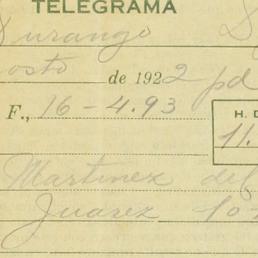 TELEGRAMA
Durango
osto de 1922 pd
F., 16-4.93 H. D
11.
Martinez del
Juarez 107